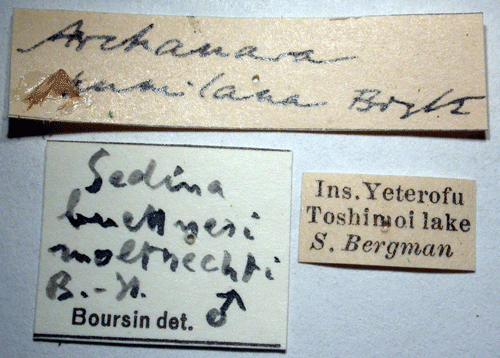 Archanara
kurilana Bryk
Sedina
buettneri
moltrechti
B.-H.
Boursin det. ♂
Ins. Yeterofu
Toshimoi lake
S. Bergman